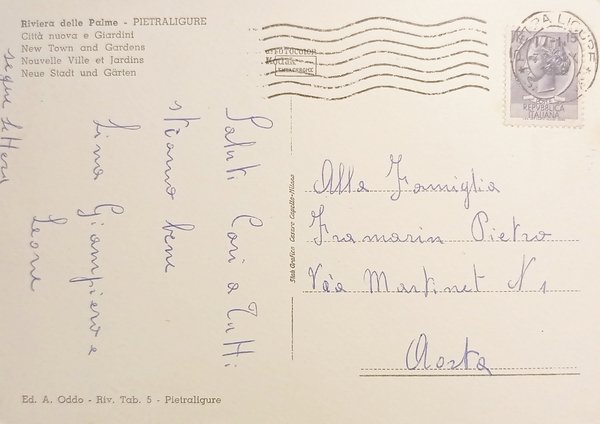 Riviera delle Palme - PIETRALIGURE
Città nuova e Giardini
New Town and Gardens
Nouvelle Ville et Jardins
Neue Stadt und Gärten
Kodak
EKTACHROME
REPUBBLICA
ITALIANA
segue lettera
Saluti Cari a Tutti
stiamo bene
Lina Giampiero e
Leone
Stab. Grafico Cesare Capello - Milano
Alla Famiglia
Framarin Pietro
Via Martinet N 1
Aosta
Ed. A. Oddo - Riv. Tab. 5 - Pietraligure